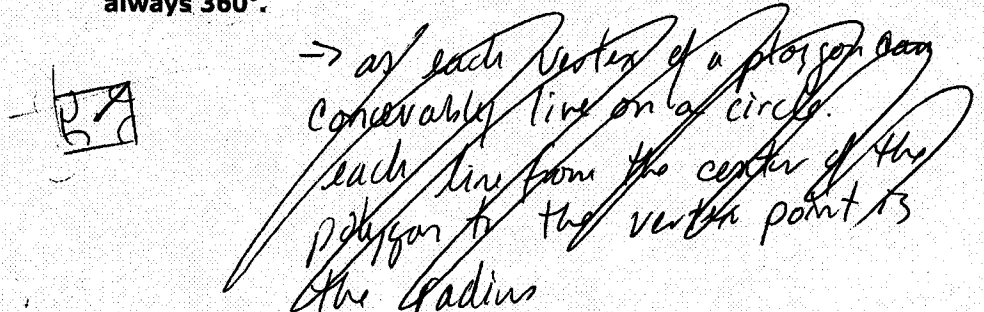 always 360°.
→ as each vertex of a ploygon can
concevably live on a circle.
each line from the center of the
polygon to the vertex point is
the radius